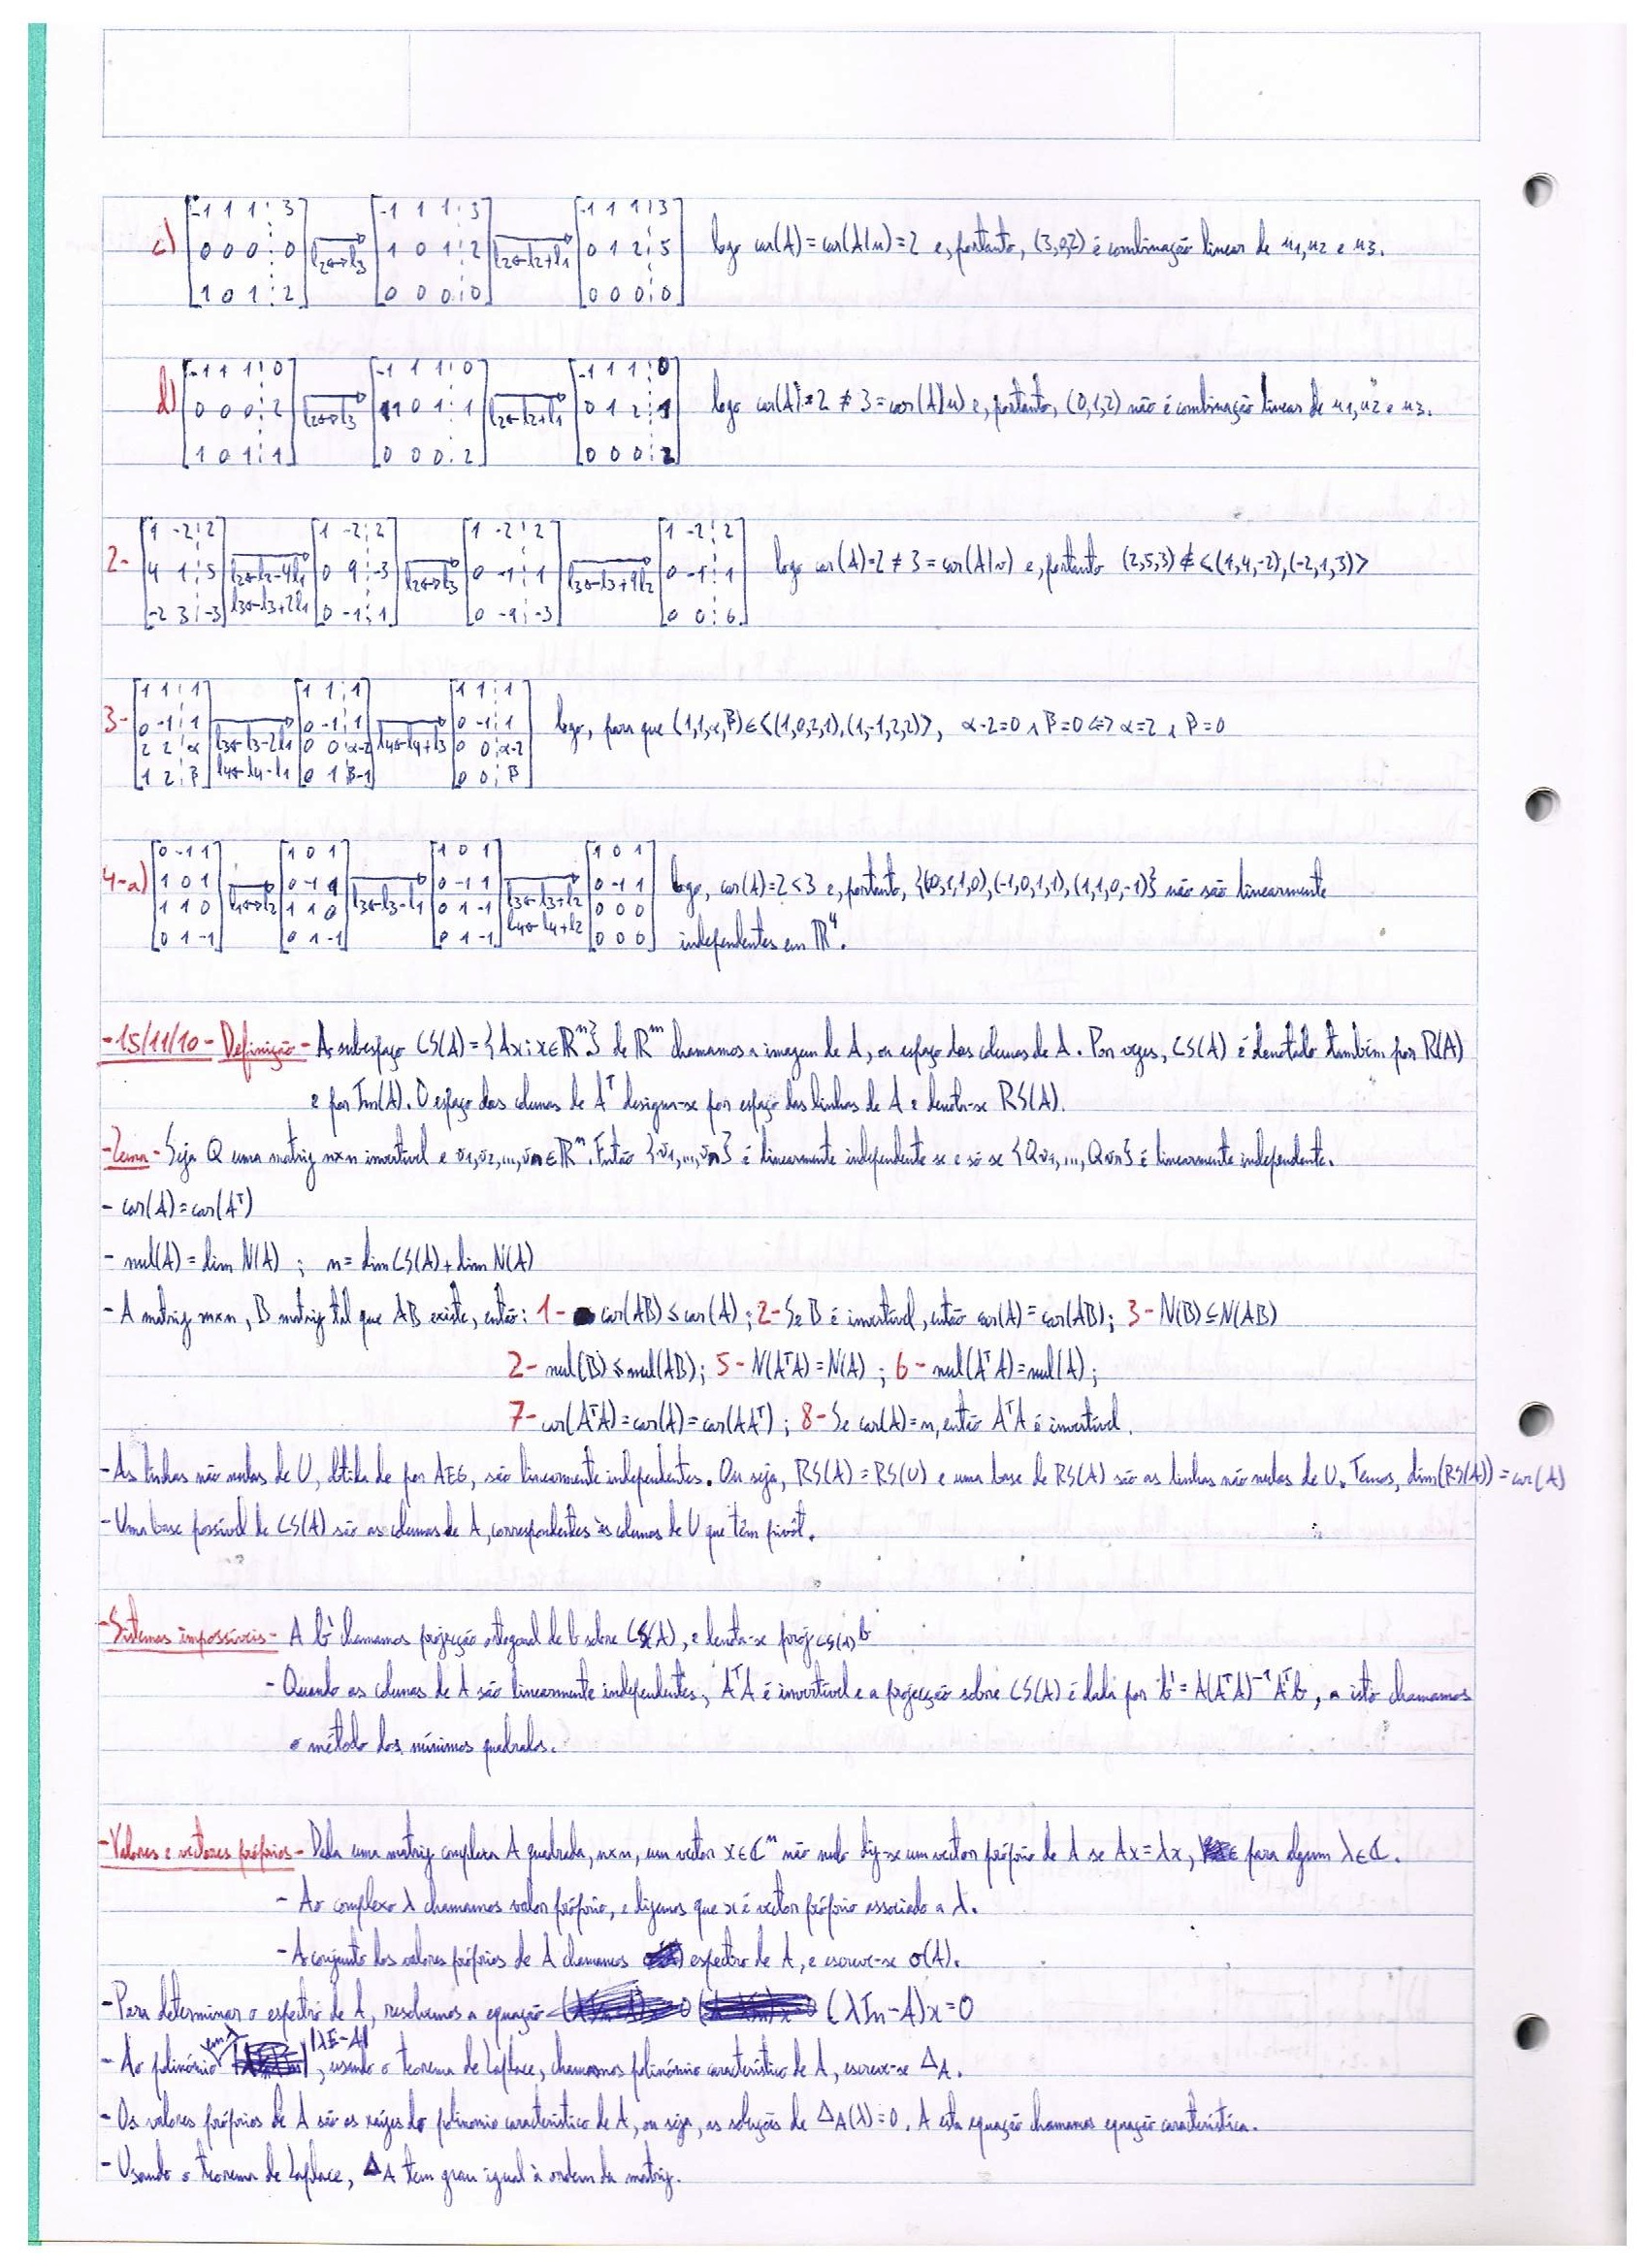 c) [-1 1 1 ¦ 3; 0 0 0 ¦ 0; 1 0 1 ¦ 2] l2↔l3 [-1 1 1 ¦ 3; 1 0 1 ¦ 2; 0 0 0 ¦ 0] l2←l2+l1 [-1 1 1 ¦ 3; 0 1 2 ¦ 5; 0 0 0 ¦ 0] logo car(A)=car(A|u)=2 e, portanto, (3,0,2) é combinação linear de u1, u2 e u3.
d) [-1 1 1 ¦ 0; 0 0 0 ¦ 2; 1 0 1 ¦ 1] l2↔l3 [-1 1 1 ¦ 0; 1 0 1 ¦ 1; 0 0 0 ¦ 2] l2←l2+l1 [-1 1 1 ¦ 0; 0 1 2 ¦ 1; 0 0 0 ¦ 2] logo car(A)=2 ≠ 3 = car(A|u) e, portanto, (0,1,2) não é combinação linear de u1, u2 e u3.
2- [1 -2 ¦ 2; 4 1 ¦ 5; -2 3 ¦ -3] l2←l2-4l1 l3←l3+2l1 [1 -2 ¦ 2; 0 9 ¦ -3; 0 -1 ¦ 1] l2↔l3 [1 -2 ¦ 2; 0 -1 ¦ 1; 0 9 ¦ -3] l3←l3+9l2 [1 -2 ¦ 2; 0 -1 ¦ 1; 0 0 ¦ 6] logo car(A)=2 ≠ 3 = car(A|v) e, portanto (2,5,3) ∉ <(1,4,-2),(-2,1,3)>
3- [1 1 ¦ 1; 0 -1 ¦ 1; 2 2 ¦ α; 1 2 ¦ β] l3←l3-2l1 l4←l4-l1 [1 1 ¦ 1; 0 -1 ¦ 1; 0 0 ¦ α-2; 0 1 ¦ β-1] l4←l4+l3 [1 1 ¦ 1; 0 -1 ¦ 1; 0 0 ¦ α-2; 0 0 ¦ β] logo, para que (1,1,α,β)∈<(1,0,2,1),(1,-1,2,2)>, α-2=0 ∧ β=0 <=> α=2 ∧ β=0
4-a) [0 -1 1; 1 0 1; 1 1 0; 0 1 -1] l1↔l2 [1 0 1; 0 -1 1; 1 1 0; 0 1 -1] l3←l3-l1 [1 0 1; 0 -1 1; 0 1 -1; 0 1 -1] l3←l3+l2 l4←l4+l2 [1 0 1; 0 -1 1; 0 0 0; 0 0 0] logo, car(A)=2<3 e, portanto, {(0,1,1,0),(-1,0,1,1),(1,1,0,-1)} não são linearmente
independentes em ℝ⁴.
-15/11/10- Definição- Ao subespaço CS(A)={Ax: x∈ℝⁿ} de ℝᵐ chamamos a imagem de A, ou espaço das colunas de A. Por vezes, CS(A) é denotado também por R(A)
e por Im(A). O espaço das colunas de Aᵀ designa-se por espaço das linhas de A e denota-se RS(A).
-Lema- Seja Q uma matriz n×n invertível e v1,v2,...,vn∈ℝⁿ. Então {v1,...,vn} é linearmente independente se e só se {Qv1,...,Qvn} é linearmente independente.
- car(A)=car(Aᵀ)
- nul(A)=dim N(A) ; n=dim CS(A)+dim N(A)
- A matriz m×n, B matriz tal que AB existe, então: 1- car(AB)≤car(A); 2- Se B é invertível, então car(A)=car(AB); 3- N(B)⊆N(AB)
2- nul(B)≤nul(AB); 5- N(AᵀA)=N(A) ; 6- nul(AᵀA)=nul(A);
7- car(AᵀA)=car(A)=car(AAᵀ) ; 8- Se car(A)=n, então AᵀA é invertível.
-As linhas não nulas de U, obtida de por AEG, são linearmente independentes. Ou seja, RS(A)=RS(U) e uma base de RS(A) são as linhas não nulas de U. Temos, dim(RS(A))=car(A)
-Uma base possível de CS(A) são as colunas de A, correspondentes às colunas de U que têm pivôt.
-Sistemas impossíveis- A b' chamamos projecção ortogonal de b sobre CS(A), e denota-se proj CS(A) b
- Quando as colunas de A são linearmente independentes, AᵀA é invertível e a projecção sobre CS(A) é dada por b'=A(AᵀA)⁻¹Aᵀb, a isto chamamos
o método dos mínimos quadrados.
-Valores e vectores próprios- Dada uma matriz complexa A quadrada, n×n, um vector x∈ℂⁿ não nulo diz-se um vector próprio de A se Ax=λx, para algum λ∈ℂ.
- Ao complexo λ chamamos valor próprio, e dizemos que x é vector próprio associado a λ.
- Ao conjunto dos valores próprios de A chamamos espectro de A, e escreve-se σ(A).
-Para determinar o espectro de A, resolvemos a equação (λIn-A)x=0
- Ao polinómio em λ |λE-A|, usando o teorema de Laplace, chamamos polinómio característico de A, escreve-se ΔA.
- Os valores próprios de A são as raízes do polinomio característico de A, ou seja, as soluções de ΔA(λ)=0. A esta equação chamamos equação característica.
- Usando o teorema de Laplace, ΔA tem grau igual à ordem da matriz.